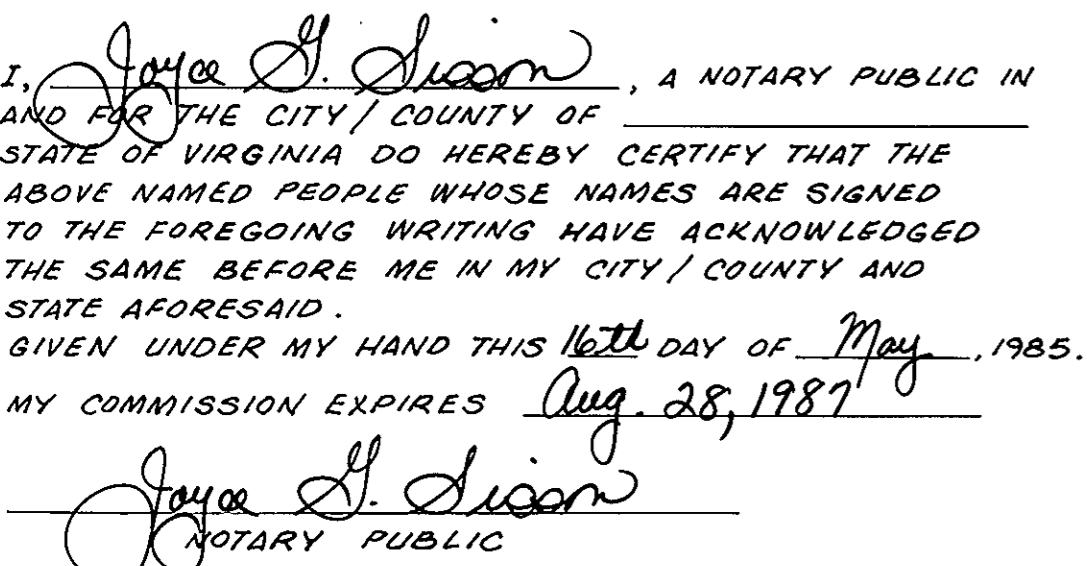 I, Joyce G. Sisson, A NOTARY PUBLIC IN
AND FOR THE CITY / COUNTY OF
STATE OF VIRGINIA DO HEREBY CERTIFY THAT THE
ABOVE NAMED PEOPLE WHOSE NAMES ARE SIGNED
TO THE FOREGOING WRITING HAVE ACKNOWLEDGED
THE SAME BEFORE ME IN MY CITY / COUNTY AND
STATE AFORESAID.
GIVEN UNDER MY HAND THIS 16th DAY OF May, 1985.
MY COMMISSION EXPIRES Aug. 28, 1987
Joyce G. Sisson
NOTARY PUBLIC